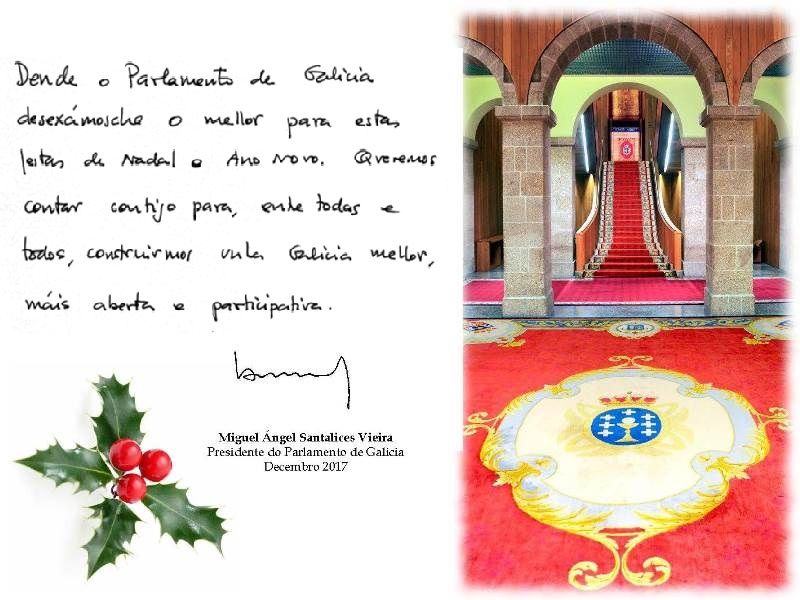 Dende o Parlamento de Galicia
desexámosche o mellor para estas
festas de Nadal e Ano Novo. Queremos
contar contigo para, entre todas e
todos, construirmos unha Galicia mellor,
máis aberta e participativa.
Miguel Ángel Santalices Vieira
Presidente do Parlamento de Galicia
Decembro 2017